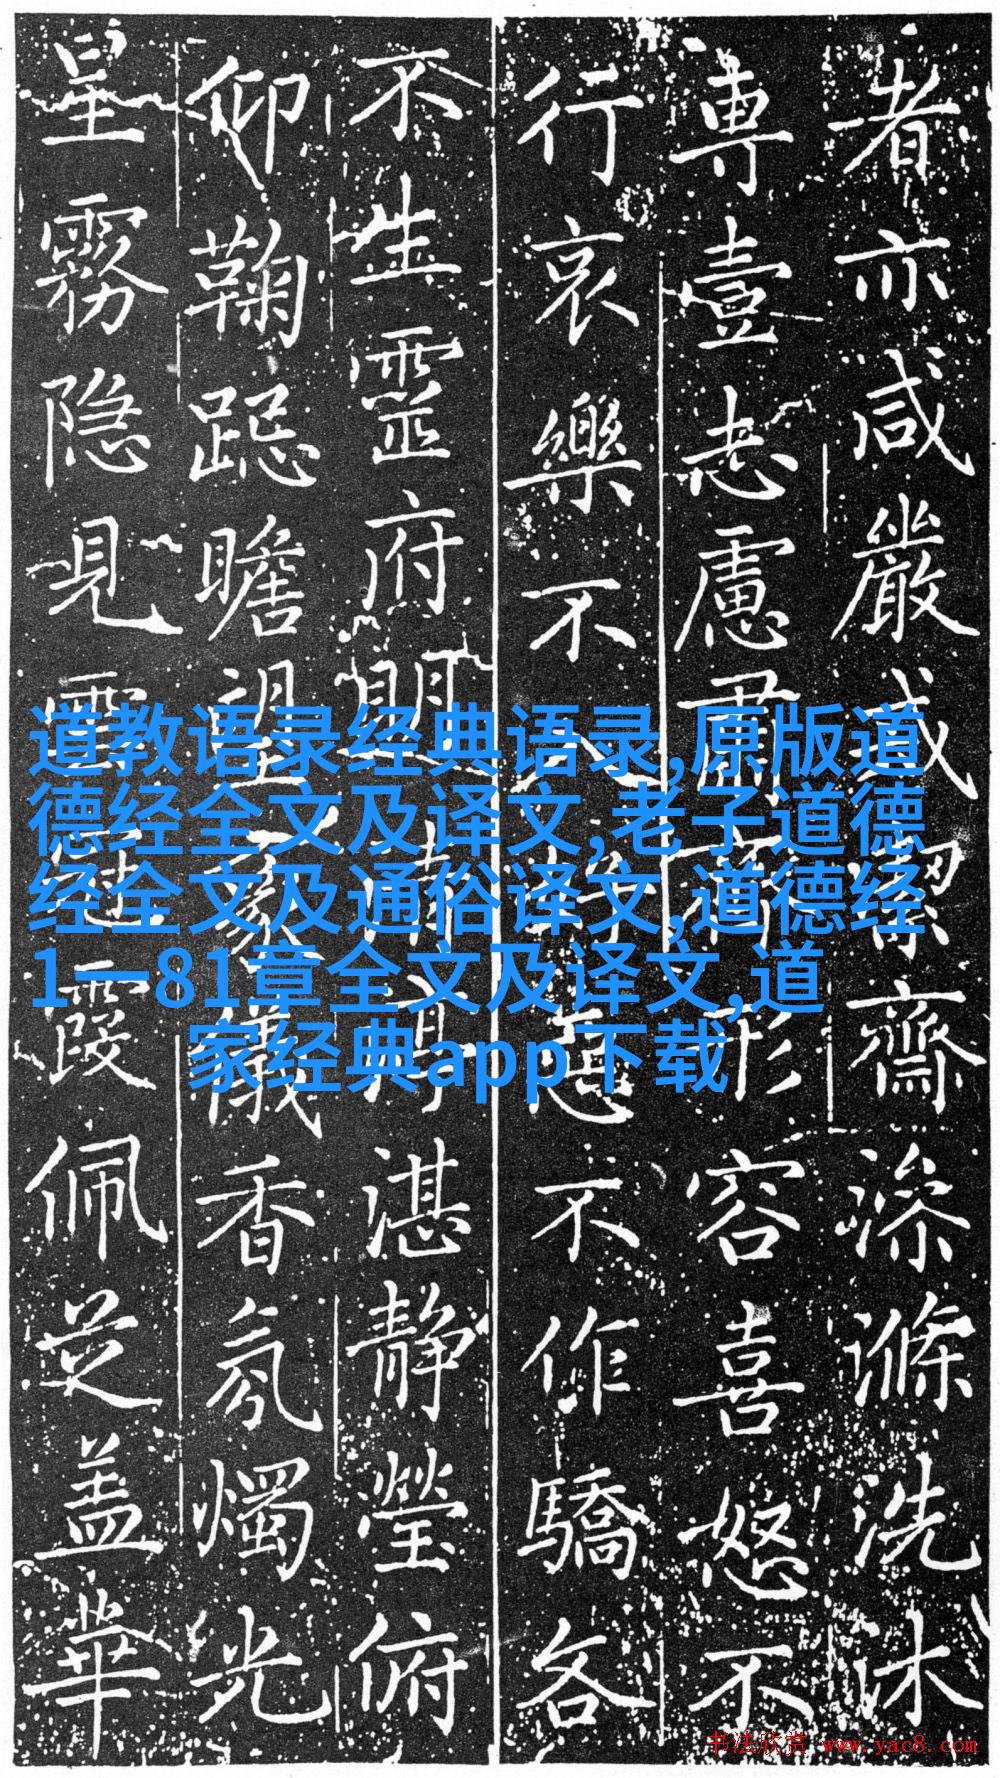 者亦咸嚴威齋滌洗沐
專壹志慮肅形容喜怒不
行哀樂不入怠不作驕各
不生靈府湛静瑩俯
仰鞠跽瞻望儀香氛燭光
星霧隐見雲霞佩芝盖華
道教语录经典语录,原版道
德经全文及译文,老子道德
经全文及通俗译文,道德经
1一81章全文及译文,道
家经典app下载
书法欣赏 www.yac8.com